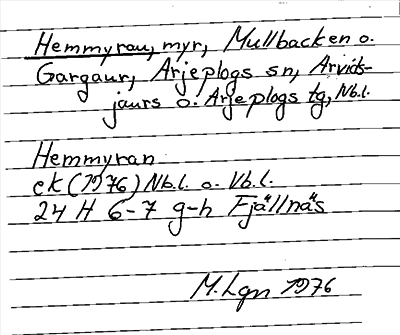 Hemmyran, myr, Mullbacken o.
Gargaur, Arjeplogs sn, Arvids-
jaurs o. Arjeplogs tg, Nb.l.
Hemmyran
ek (1976) Nb.l. o. Vb.l.
24 H 6-7 g-h Fjällnäs
M. Lgn 1976